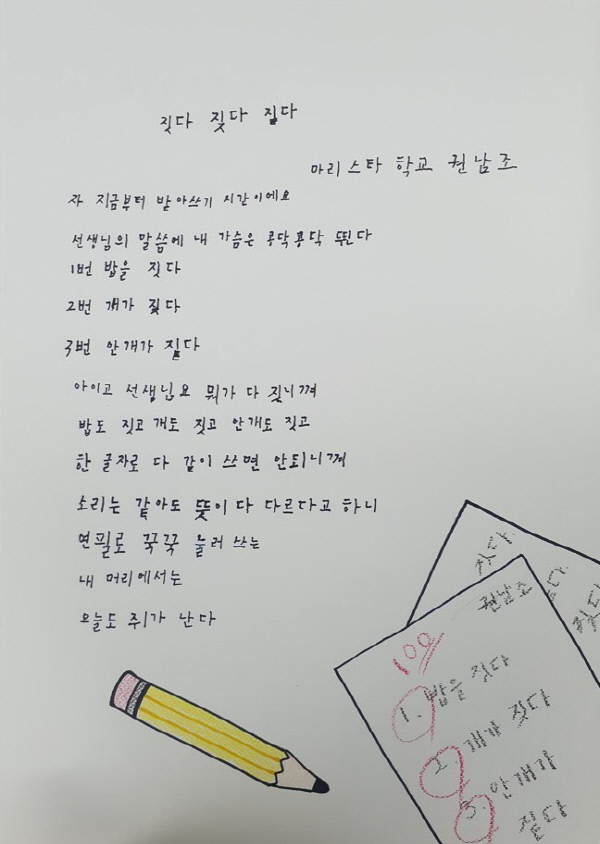 짓다 짖다 짙다
마리스타 학교 권남조
자 지금부터 받아쓰기 시간이에요
선생님의 말씀에 내 가슴은 콩닥콩닥 뛴다
1번 밥을 짓다
2번 개가 짖다
3번 안개가 짙다
아이고 선생님요 뭐가 다 짓니껴
밥도 짓고 개도 짓고 안개도 짓고
한 글자로 다 같이 쓰면 안되니껴
소리는 같아도 뜻이 다 다르다고 하니
연필로 꾹꾹 눌러 쓰는
내 머리에서는
오늘도 쥐가 난다
권남조
100
1. 밥을 짓다
2. 개가 짖다
3. 안개가
짙다